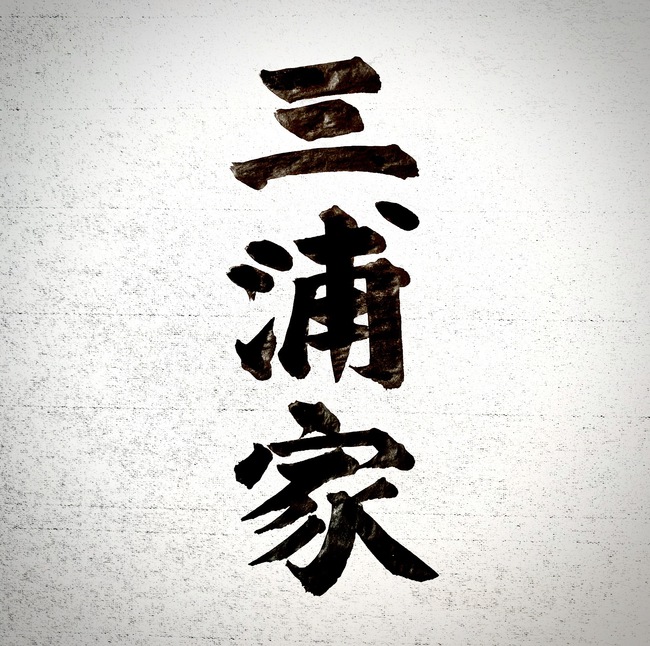 三浦家